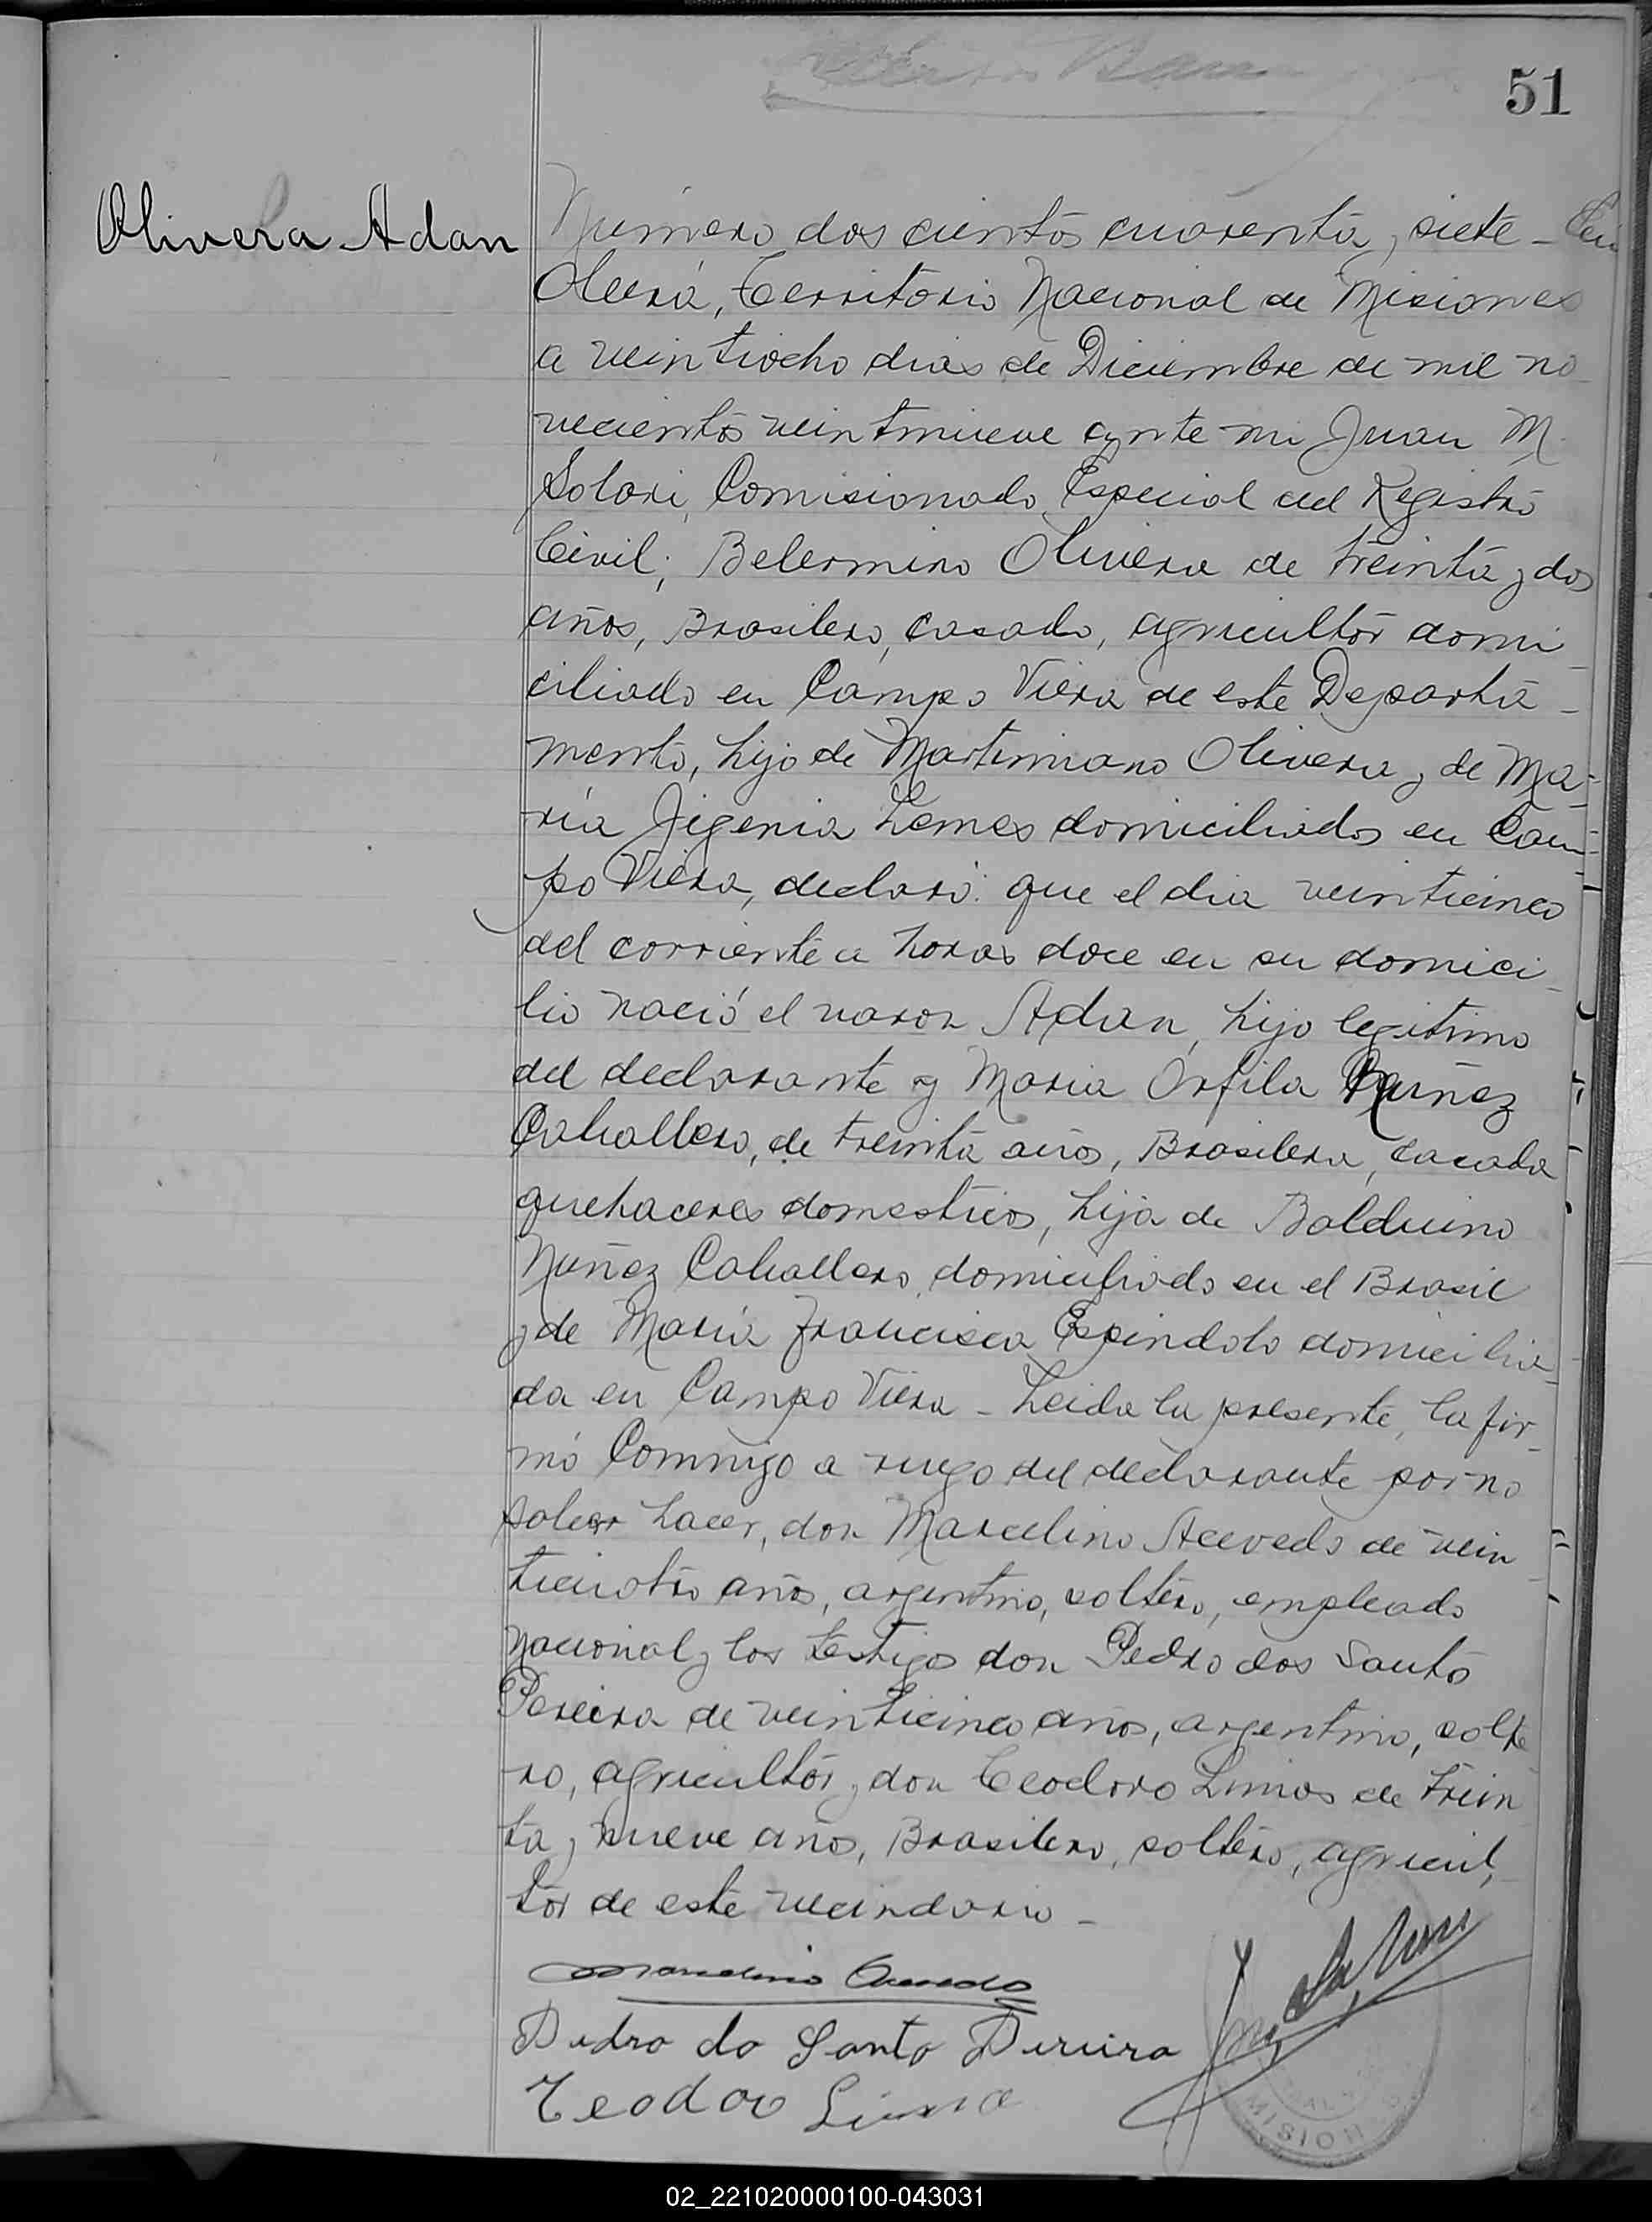 51
Olivera Adan
Número dos cientos cuarenta y siete - En
Oberá, Territorio Nacional de Misiones
a veintiocho dias de Diciembre de mil no
vecientos veintinueve ante mi Juan M.
Solari, Comisionado Especial del Registro
Civil; Belermino Olivera de treinta y dos
años, Brasilero, casado, agricultor domi
ciliado en Campo Viera de este Departa-
mento, hijo de Martimiano Olivera y de Ma-
ria Jigenia Lemes domiciliados en Cam-
po Viera, declaró: que el dia veinticinco
del corriente a horas doce en su domici-
lio nació el varon Adan, hijo legitimo
del declarante y Maria Orfila Nuñez
Caballero, de treinta años, Brasilera, casada
quehaceres domesticos, hija de Balduino
Nuñez Caballero, domiciliado en el Brasil
y de Maria Francisca Espindolo domicilia-
da en Campo Viera - Leida la presente, la fir-
mó Conmigo a ruego del declarante por no
saber hacer, don Marcelino Acevedo de vein
ticuatro años, argentino, soltero, empleado
Nacional y los testigos don Pedro dos Santos
Pereira de veinticinco años, argentino, solte
ro, agricultor y don Teodoro Limas de trein
ta y nueve años, Brasilero, soltero, agricul-
tor de este vecindario -
Marcelino Acevedo
Pedro do Santo Pereira
Teodoro Lima
MISION
02_221020000100-043031